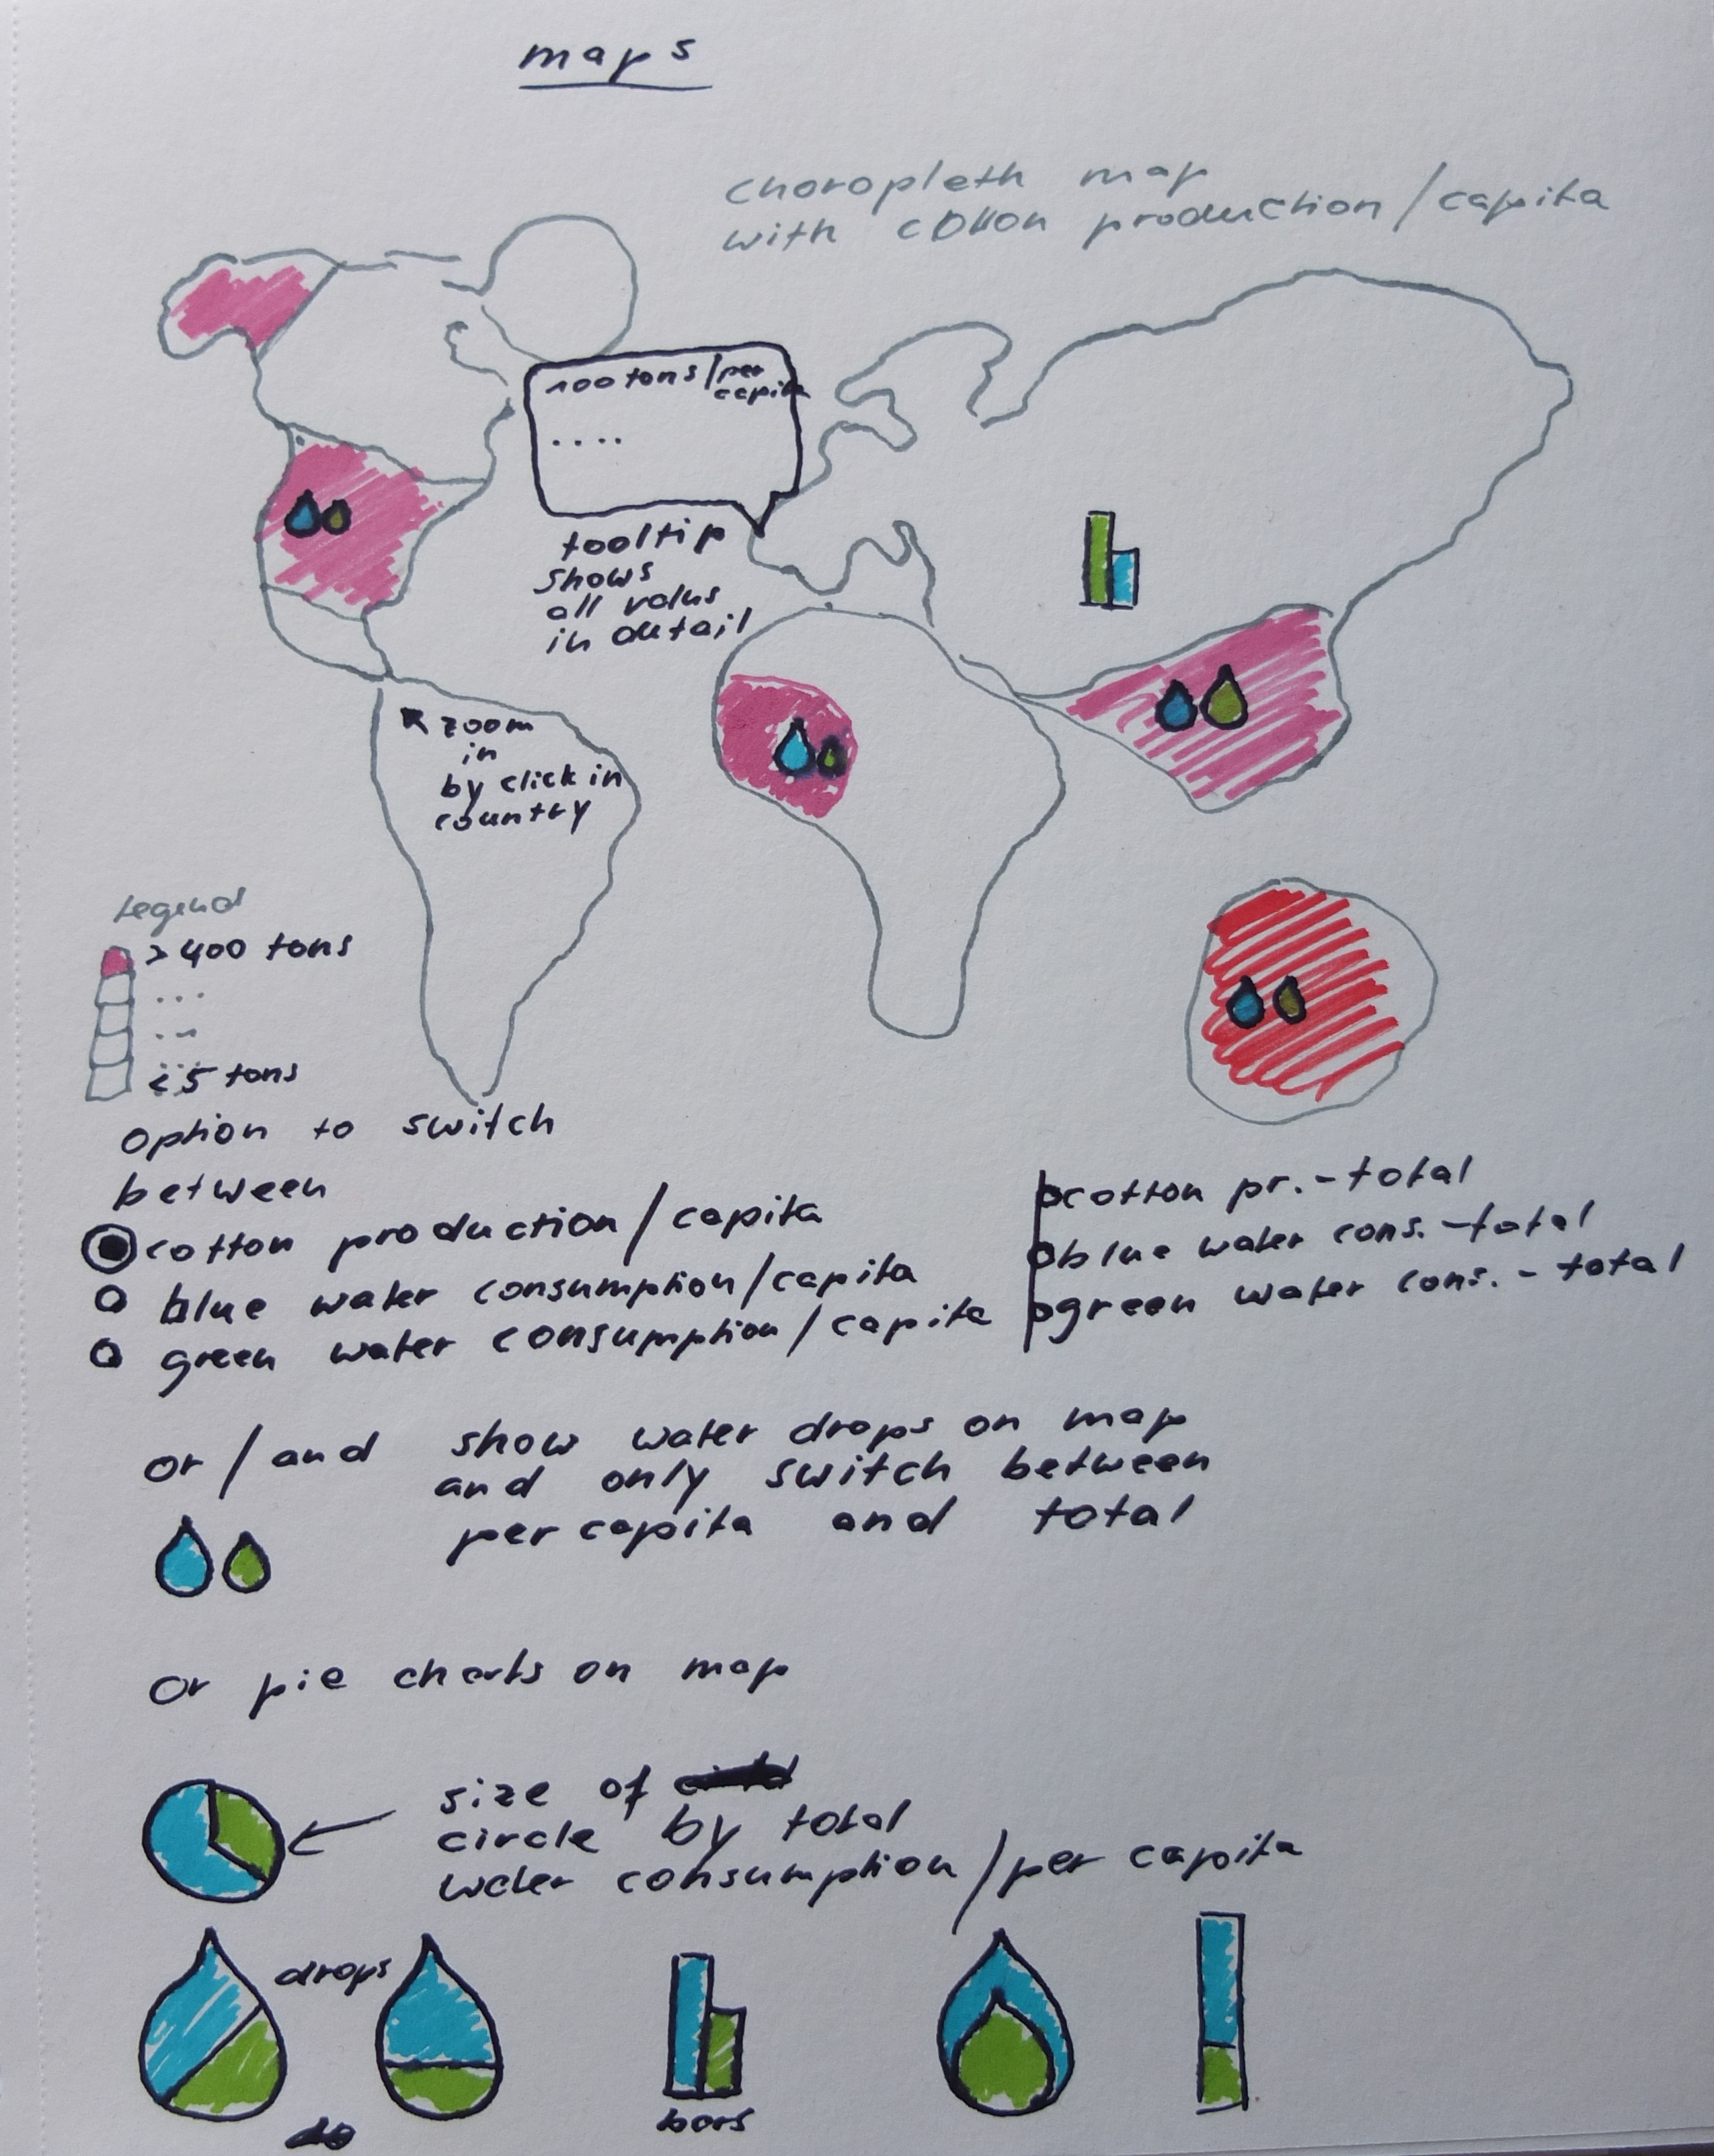 maps
choropleth map
with cotton production/capita
100 tons/per
capita
....
tooltip
shows
all valus
in detail
zoom
in
by click in
country
Legend
> 400 tons
...
...
< 5 tons
Option to switch
between
cotton production/capita
blue water consumption/capita
green water consumption/capita
cotton pr. - total
blue water cons. - total
green water cons. - total
or/and show water drops on map
and only switch between
per capita and total
Or pie charts on map
size of
circle by total
water consumption/per capita
drops
bars